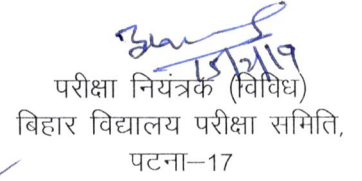 15/2/19
परीक्षा नियंत्रक (विविध)
बिहार विद्यालय परीक्षा समिति,
पटना–17